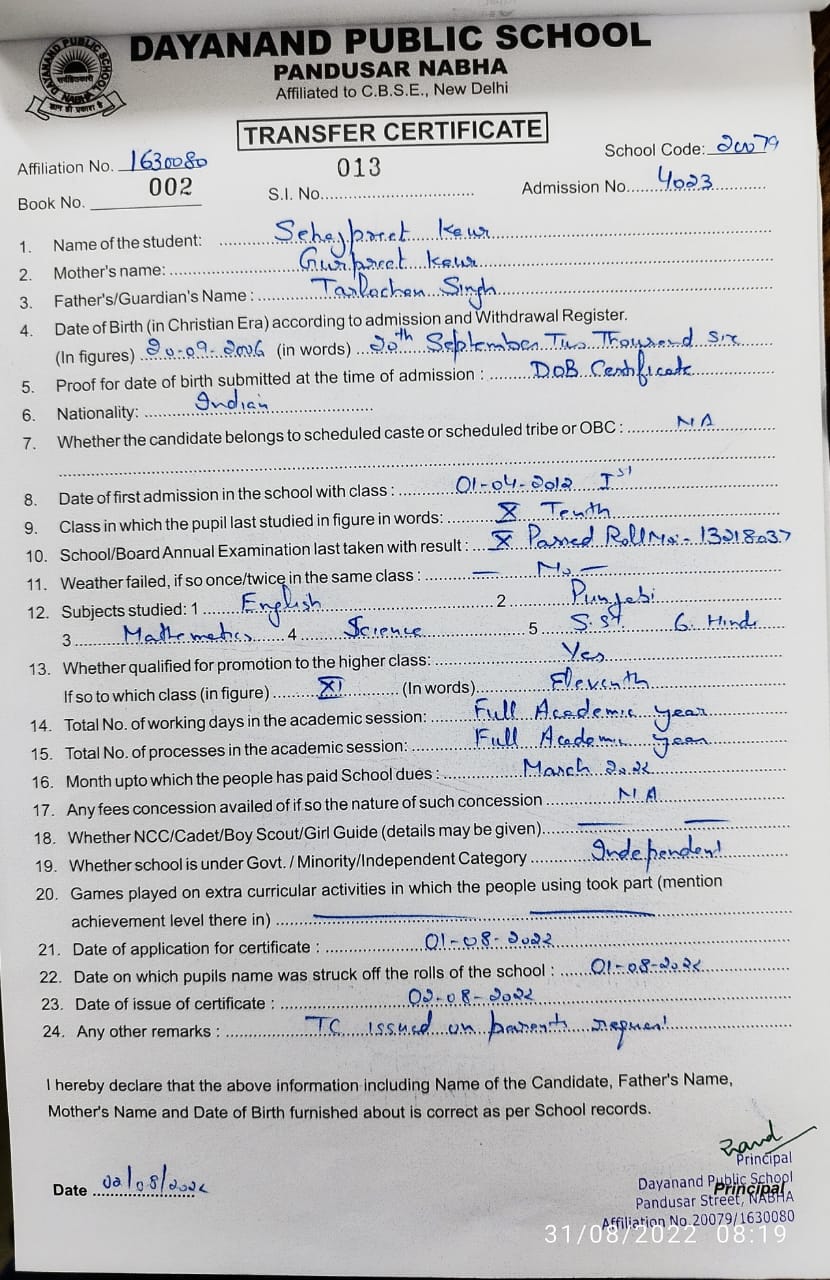 DAYANAND PUBLIC SCHOOL
PANDUSAR NABHA
Affiliated to C.B.S.E., New Delhi
DAYANAND PUBLIC SCHOOL
NABHA
TRANSFER CERTIFICATE
Affiliation No. 1630080 School Code: 20079
Book No. 002 S.I. No. 013 Admission No. 4023
1. Name of the student: Sehajpreet Kaur
2. Mother's name: Gurpreet Kaur
3. Father's/Guardian's Name: Tarlochan Singh
4. Date of Birth (in Christian Era) according to admission and Withdrawal Register.
(In figures) 20-09-2006 (in words) 20th September Two Thousand Six
5. Proof for date of birth submitted at the time of admission : DOB Certificate
6. Nationality: Indian
7. Whether the candidate belongs to scheduled caste or scheduled tribe or OBC : NA
8. Date of first admission in the school with class : 01-04-2012 Ist
9. Class in which the pupil last studied in figure in words: X Tenth
10. School/Board Annual Examination last taken with result : X Passed Roll No:- 13218037
11. Weather failed, if so once/twice in the same class : — No —
12. Subjects studied: 1 English 2 Punjabi
3 Mathematics 4 Science 5 S.St. 6. Hindi
13. Whether qualified for promotion to the higher class: Yes
If so to which class (in figure) XI (In words) Eleventh
14. Total No. of working days in the academic session: Full Academic year
15. Total No. of processes in the academic session: Full Academic year
16. Month upto which the people has paid School dues : March 2022
17. Any fees concession availed of if so the nature of such concession NA
18. Whether NCC/Cadet/Boy Scout/Girl Guide (details may be given) — —
19. Whether school is under Govt. / Minority/Independent Category Independent
20. Games played on extra curricular activities in which the people using took part (mention
achievement level there in) — —
21. Date of application for certificate : 01-08-2022
22. Date on which pupils name was struck off the rolls of the school : 01-08-2022
23. Date of issue of certificate : 02-08-2022
24. Any other remarks : TC issued on parents request
I hereby declare that the above information including Name of the Candidate, Father's Name,
Mother's Name and Date of Birth furnished about is correct as per School records.
Principal
Date 02/08/2022 Dayanand Public School
Principal
Pandusar Street, NABHA
Affiliation No.20079/1630080
31/08/2022 08:19